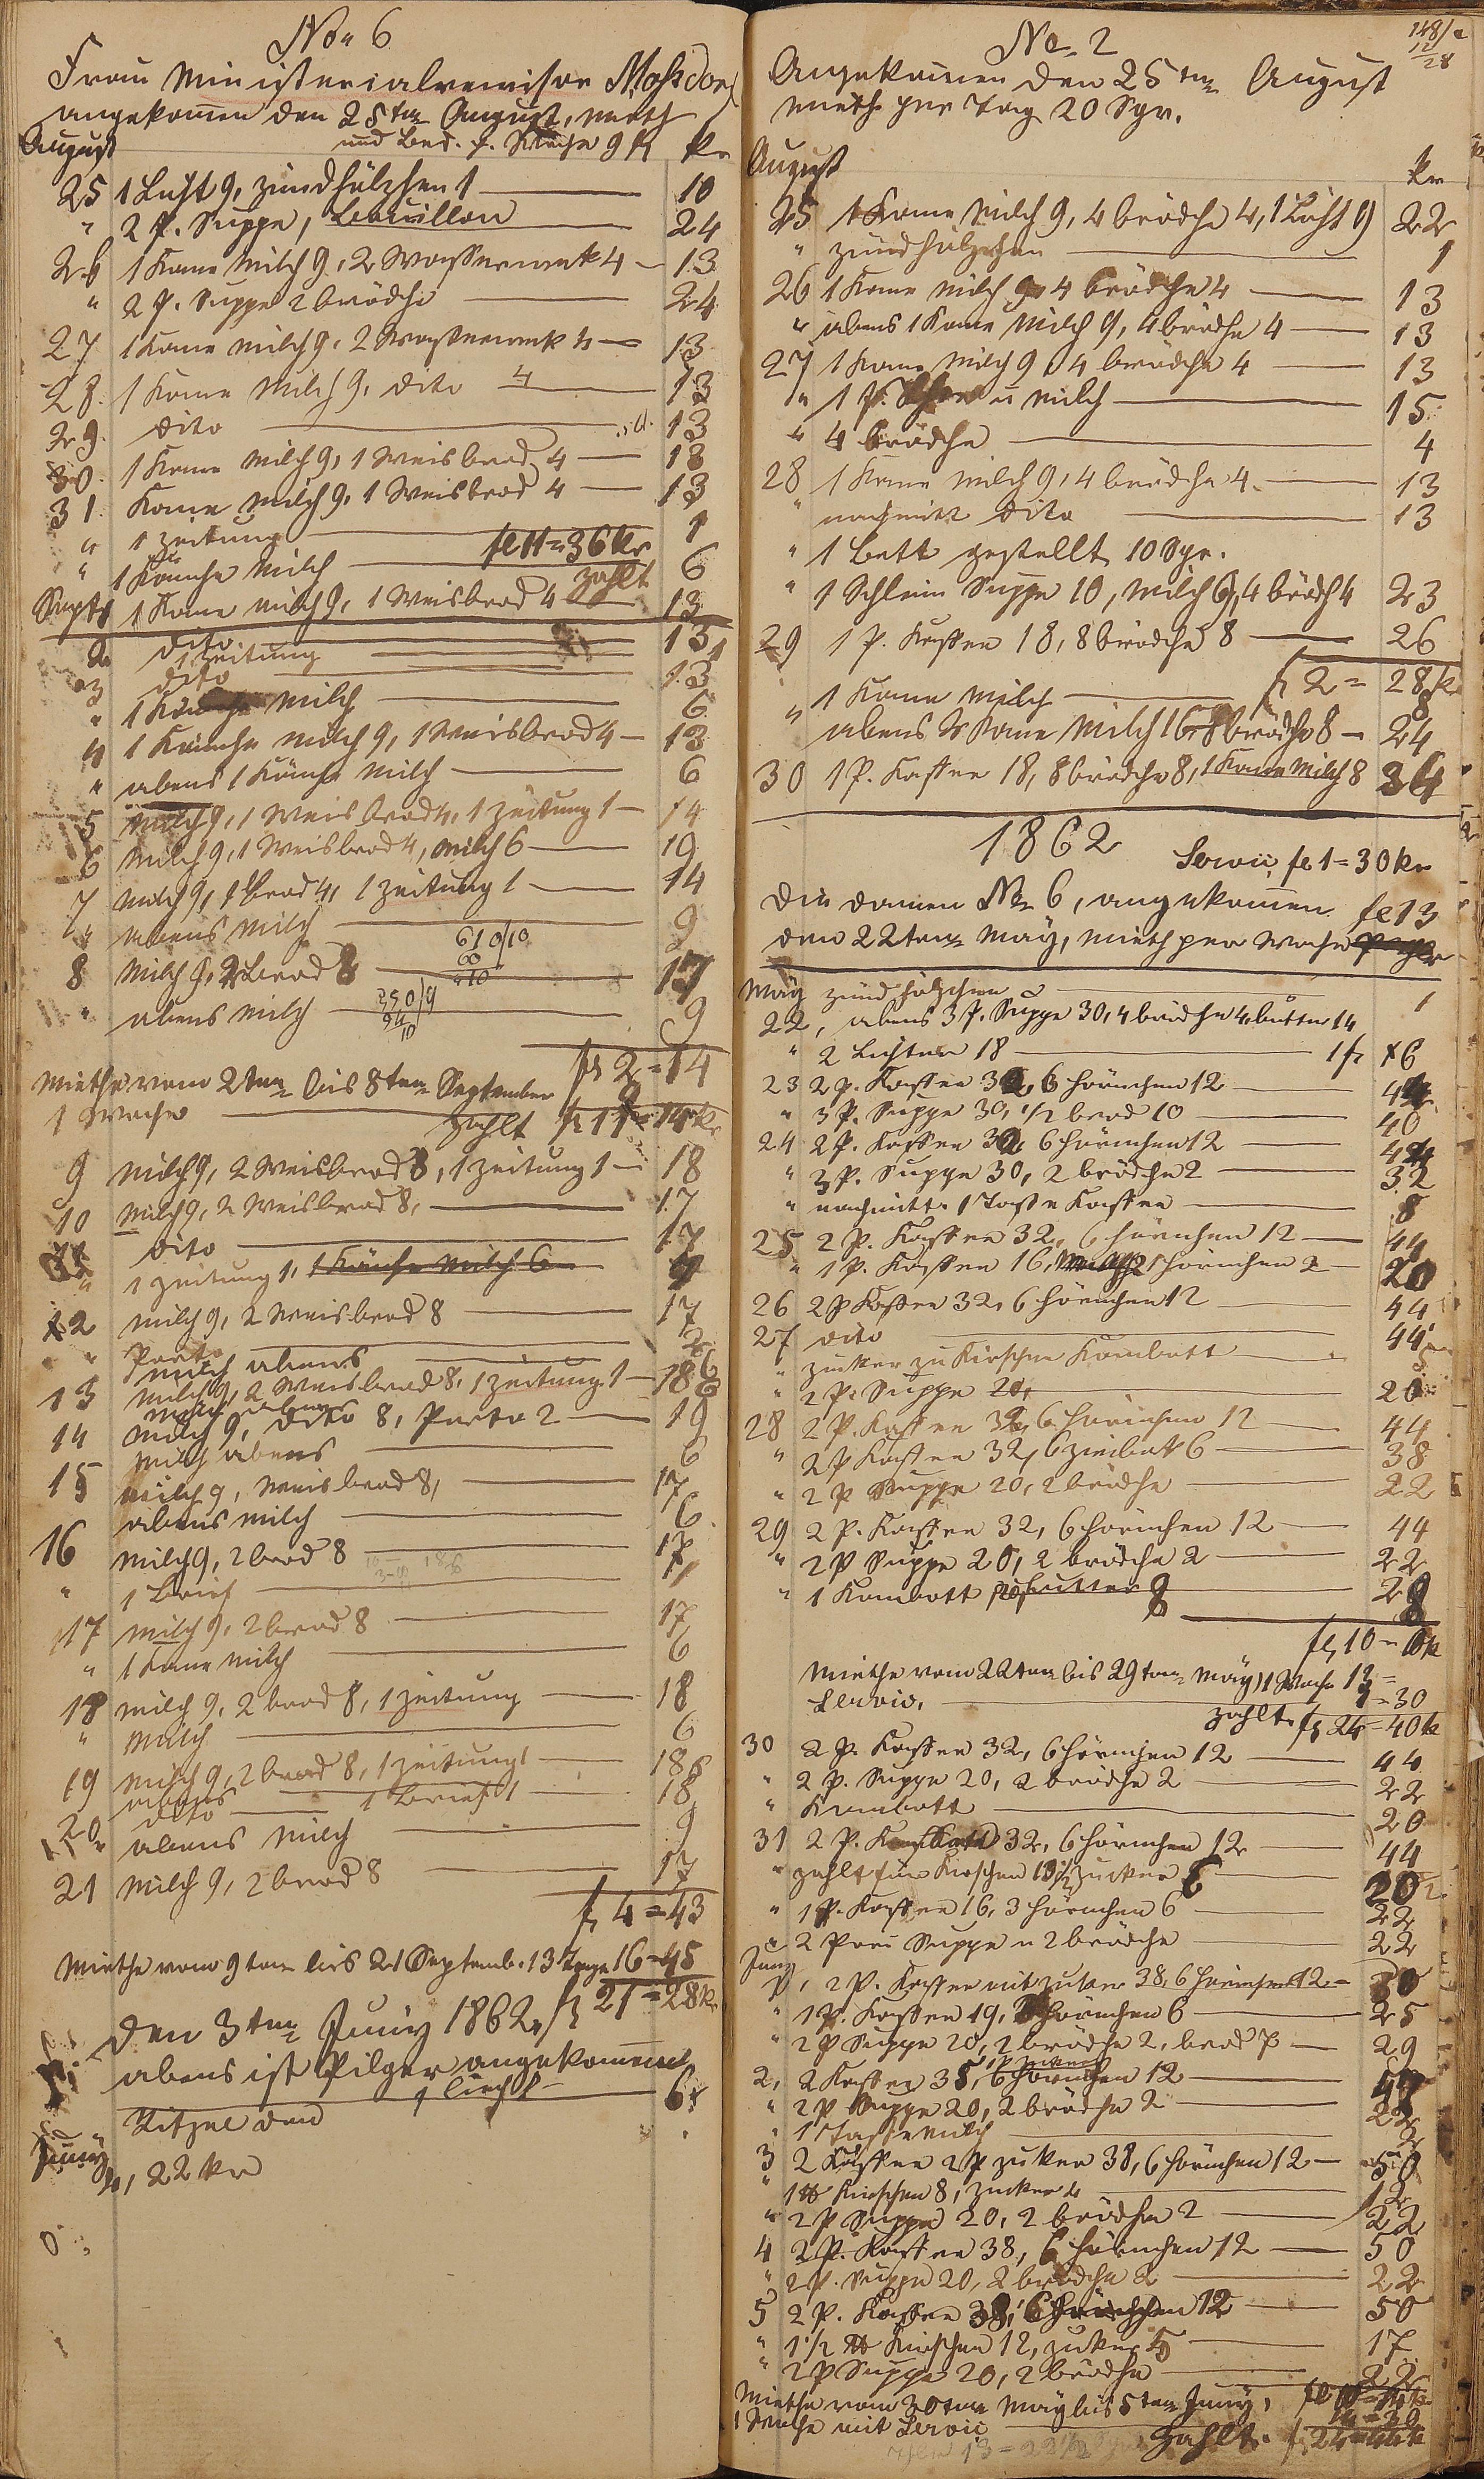 No 6
Frau Ministerialrevisor Mossdorf
angekom̄en den 25ten August, mieth
und Bed. p. Woche 9 fl kr
August
25 1 Licht 9, zündhölzchen 1 10
" 2 P. Suppe, Bouillon 24
26 1 Kane Milch 9, 2 Wasserweck 4 13
" 2 P. Suppe 2 brödche 24
27 1 Kane Milch 9, 2 Wasserweck 4 13
28 1 Kane Milch 9, dito 4 13
29 dito 13
30 1 Kane Milch 9, 1 Weisbrod 4 13
31 Kane Milch 9, 1 Weisbrod 4 13
" 1 Zeitung 1
fl 11 = 36 kr
" 1 Känche Milch zahlt 6
Sept 1 1 Kane Milch 9, 1 Weisbrod 4 13
2 dito 13
1 Zeitung 1
3 dito 13
" 1 Känche Milch 6
4 1 Känche Milch 9, 1 Weisbrod 4 13
" abens 1 Känche Milch 6
5 Milch 9, 1 Weisbrod 4, 1 Zeitung 1 14
6 Milch 9, 1 Weisbrod 4, Milch 6 19
7 Milch 9, 1 brod 4, 1 Zeitung 1 14
" abens Milch 9
8 Milch 9, 2 brod 8 17
" abens Milch 9
fl 2 = 14
Miethe vom 2ten bis 8ten September 9
1 Woche zahlt fl 11 = 14 kr
9 Milch 9, 2 Weisbrod 8, 1 Zeitung 1 18
10 Milch 9, 2 Weisbrod 8, 17
11 dito 17
" 1 Zeitung 1, 1 Känche Milch 6
12 Milch 9, 2 Weisbrod 8 17
" Porto 2
Milch abens 6
13 Milch 9, 2 Weisbrod 8, 1 Zeitung 1 18
Milch abens 6
14 Milch 9, dito 8, Porto 2 19
Milch abens 6
15 Milch 9, Weisbrod 8, 17
abens Milch 6
16 Milch 9, 2 brod 8 17
" 1 Brief 1
17 Milch 9, 2 brod 8 17
" 1 Kane Milch 6
18 Milch 9, 2 brod 8, 1 Zeitung 18
" Milch 6
19 Milch 9, 2 brod 8, 1 Zeitung 1 18
abens 6
20 dito 1 Brief 1 18
abens Milch 9
21 Milch 9, 2 brod 8 17
fl 4 = 43
Miethe vom 9ten bis 21 Septemb. 13 Tage 16 = 45
fl 21 = 28 kr
den 3ten Juny 1862
abens ist Pilger angekom̄en
1 Licht 6
Juny
22 kr
No. 2
Angekom̄en den 25ten August
mieth per Tag 20 Sgr.
August kr
25 1 Kane Milch 9, 4 brödche 4, 1 Licht 9 22
" zündhölzchen 1
26 1 Kane Milch 9, 4 brödche 4 13
" abens 1 Kane Milch 9, 4 brödche 4 13
27 1 Kane Milch 9, 4 brödche 4 13
" 1 P. Thee u Milch 15
" 4 brödche 4
28 1 Kane Milch 9, 4 brödche 4 13
" nachmitt dito 13
" 1 Bett gestellt 10 Sgr.
" 1 Schleim Suppe 10, Milch 9, 4 brödch 4 23
29 1 P. Kaffee 18, 8 brödche 8 26
fl 2 = 28 kr
" 1 Kane Milch 8
abens 2 Kane Milch 16, 8 brödche 8 24
30 1 P. Kaffee 18, 8 brödche 8, 1 Kane Milch 8 34
1862
Servic, fl 1 = 30 kr
Die damen No. 6, angekom̄en fl 13
den 22ten May, mieth per Woche
May zündhölzchen 1
22, abens 3 P. Suppe 30, 4 brödche 4, butter 14
" 2 Lichter 18 1 fl 6
23 2 P. Kaffee 32, 6 hörnchen 12 44
" 3 P. Suppe 30, 1/2 brod 10 40
24 2 P. Kaffee 32, 6 hörnchen 12 44
" 3 P. Suppe 30, 2 brödche 2 32
" nachmitt. 1 Tasse Kaffee 8
25 2 P. Kaffee 32, 6 hörnchen 12 44
" 1 P. Kaffee 16, hörnchen 2 20
26 2 P Kaffee 32, 6 hörnchen 12 44
27 dito 44
" zucker zu Kirschen Kombott
" 2 P. Suppe 20, 20
28 2 P. Kaffee 32, 6 hörnchen 12 44
" 2 P Kaffee 32, 6 zwiback 6 38
" 2 P Suppe 20, 2 brödche 22
29 2 P. Kaffee 32, 6 hörnchen 12 44
" 2 P Suppe 20, 2 brödche 2 22
" 1 Kombott
Miethe vom 22ten bis 29ten May, 1 Woche 13 =
Servic, 1 = 30
zahlt fl 24 = 40 k
30 2 P. Kaffee 32, 6 hörnchen 12 44
" 2 P. Suppe 20, 2 brödche 2 22
" Kombott 20
31 2 P. 32, 6 hörnchen 12 44
" zahlt für Kirschen zucker 20
" 1 P. Kaffee 16, 3 hörnchen 6 22
" 2 Pors Suppe u 2 brödche 22
Juny
1, 2 P. Kaffee mit zucker 38, 6 hörnchen 12 50
" 1 P. Kaffee 19, 3 hörnchen 6 25
" 2 P Suppe 20, 2 brödche 2, brod 7 29
2, 2 Kaffee 35, 6 hörnchen 12 47
" 2 P Suppe 20, 2 brödche 2 22
" 1 Tasse Milch
3 2 Kaffee 2 P zucker 38, 6 hörnchen 12 50
" 1 ℔ Kirschen 8, zucker 4 12
" 2 P Suppe 20, 2 brödche 2 22
4 2 P. Kaffee 38, 6 hörnchen 12 50
" 2 P. Suppe 20, 2 brödche 2 22
5 2 P. Kaffee 38, 6 hörnchen 12 50
" 1 1/2 ℔ Kirschen 12, zucker 5 17
" 2 P Suppe 20, 2 brödche 22
Miethe vom 30ten May bis 5ten Juny,
1 Woche mit Servic 14 = 30
zahlt.